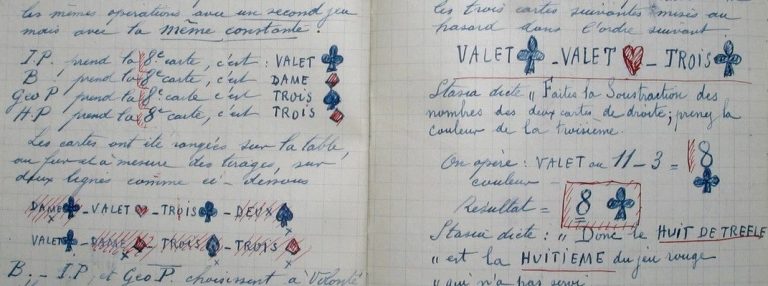 les mêmes opérations avec un second jeu
mais avec la même constante.
I.P. prend la 8e carte, c'est : VALET ♣
B prend la 8e carte, c'est DAME ♦
Geo P prend la 8e carte, c'est TROIS ♠
H.P prend la 8e carte, c'est TROIS ♦
Les cartes ont été rangées sur la table,
au fur et à mesure des tirages, sur
deux lignes comme ci-dessous
DAME ♣ - VALET ♥ - TROIS ♣ - DEUX ♠
VALET ♣ - DAME ♦ - TROIS ♠ - TROIS ♦
B. - I.P. et Geo P. choisissent à volonté
les trois cartes suivantes mises au
hasard dans l'ordre suivant.
VALET ♣ - VALET ♥ - TROIS ♣
Stasia dicte " Faites la Soustraction des
nombres des deux cartes de droite ; prenez la
couleur de la troisième.
On opère : VALET ou 11 - 3 = 8
couleur - ♣
Résultat = 8 ♣
Stasia dicte : " Donc le HUIT DE TREFLE
" est la HUITIEME du jeu rouge
" qui n'a pas servi